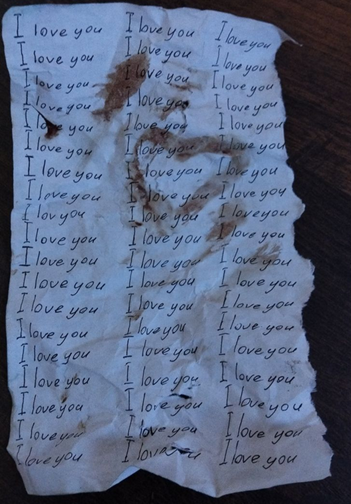 I love you I love you I love you
I love you I love you I love you
I love you I love you I love you
I love you I love you I love you
I love you I love you I love you
I love you I love you I love you
I love you I love you I love you
I love you I love you I love you
I lov you I love you I love you
I love you I love you I love you
I love you I love you I love you
I love you I love you I love you
I love you I love you I love you
I love you I love you I love you
I love you I love you I love you
I love you I love you I love you
I love you I love you I love you
I love you I love you I love you
I love you I you I love you